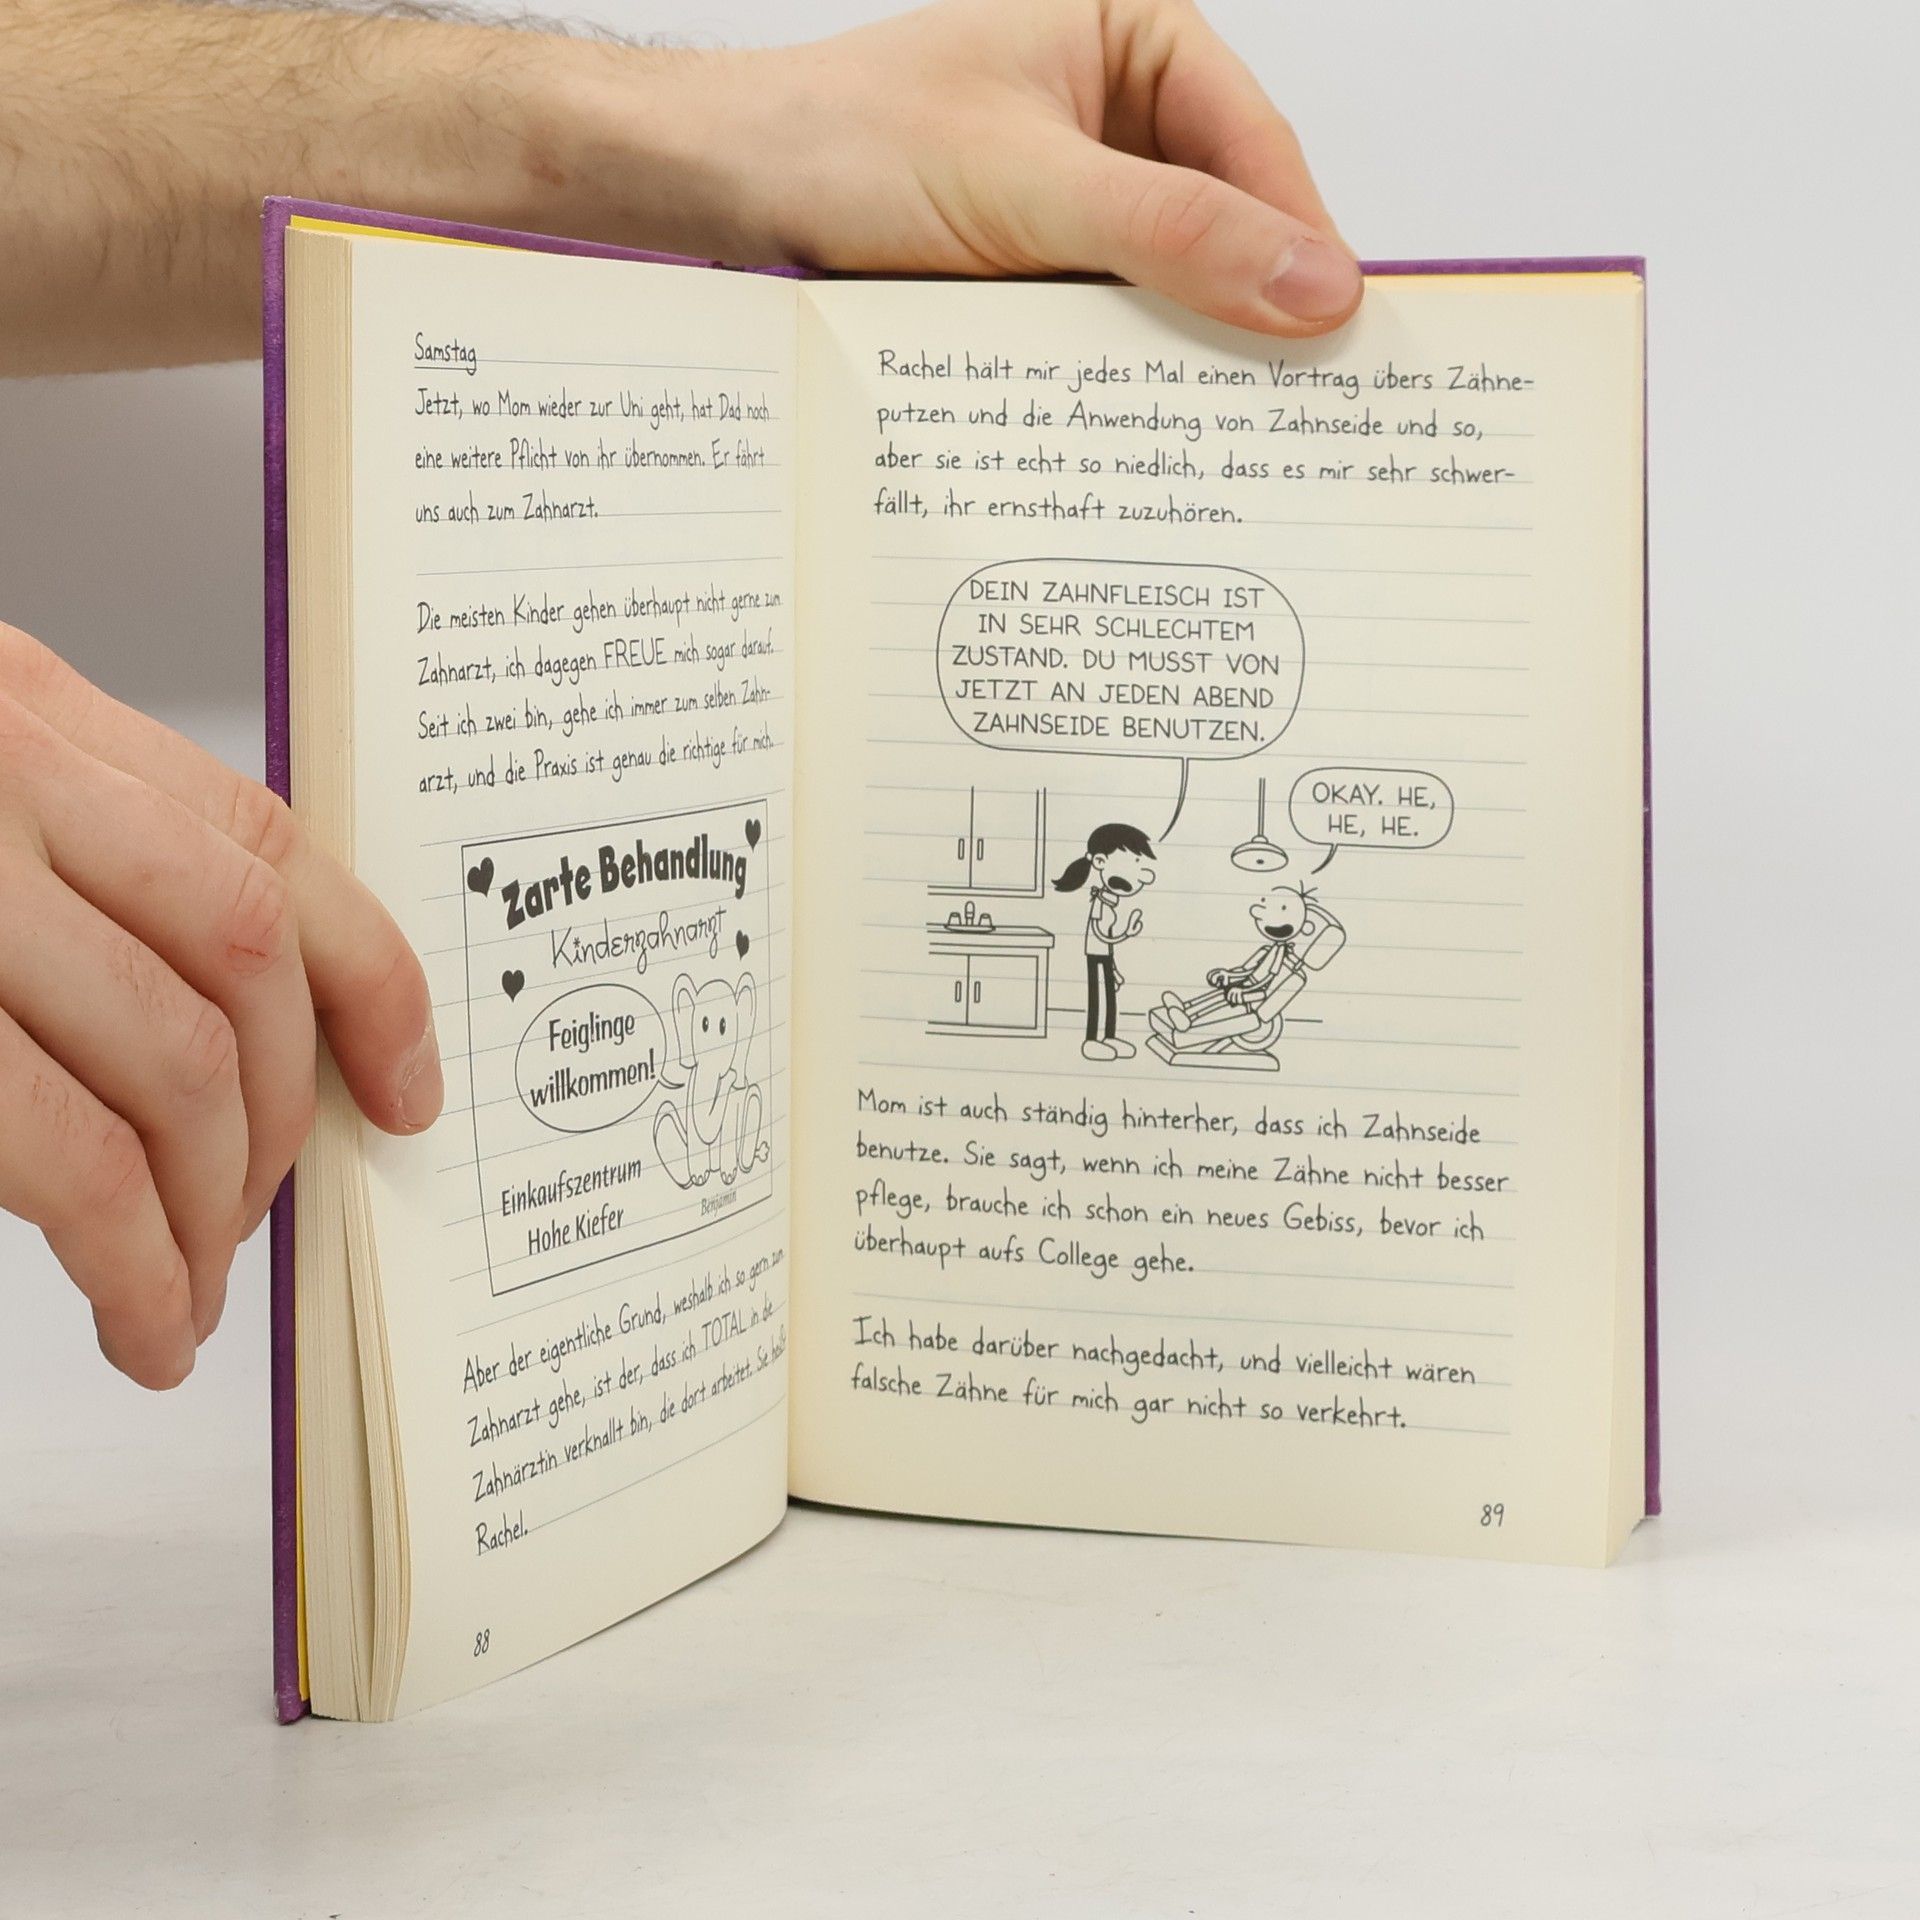 Samstag
Jetzt, wo Mom wieder zur Uni geht, hat Dad noch
eine weitere Pflicht von ihr übernommen. Er fährt
uns auch zum Zahnarzt.
Die meisten Kinder gehen überhaupt nicht gerne zum
Zahnarzt, ich dagegen FREUE mich sogar darauf.
Seit ich zwei bin, gehe ich immer zum selben Zahn-
arzt, und die Praxis ist genau die richtige für mich.
Zarte Behandlung
Kinderzahnarzt
Feiglinge
willkommen!
Benjamin
Einkaufszentrum
Hohe Kiefer
Aber der eigentliche Grund, weshalb ich so gern zum
Zahnarzt gehe, ist der, dass ich TOTAL in die
Zahnärztin verknallt bin, die dort arbeitet. Sie heißt
Rachel.
88
Rachel hält mir jedes Mal einen Vortrag übers Zähne-
putzen und die Anwendung von Zahnseide und so,
aber sie ist echt so niedlich, dass es mir sehr schwer-
fällt, ihr ernsthaft zuzuhören.
DEIN ZAHNFLEISCH IST
IN SEHR SCHLECHTEM
ZUSTAND. DU MUSST VON
JETZT AN JEDEN ABEND
ZAHNSEIDE BENUTZEN.
OKAY. HE,
HE, HE.
Mom ist auch ständig hinterher, dass ich Zahnseide
benutze. Sie sagt, wenn ich meine Zähne nicht besser
pflege, brauche ich schon ein neues Gebiss, bevor ich
überhaupt aufs College gehe.
Ich habe darüber nachgedacht, und vielleicht wären
falsche Zähne für mich gar nicht so verkehrt.
89